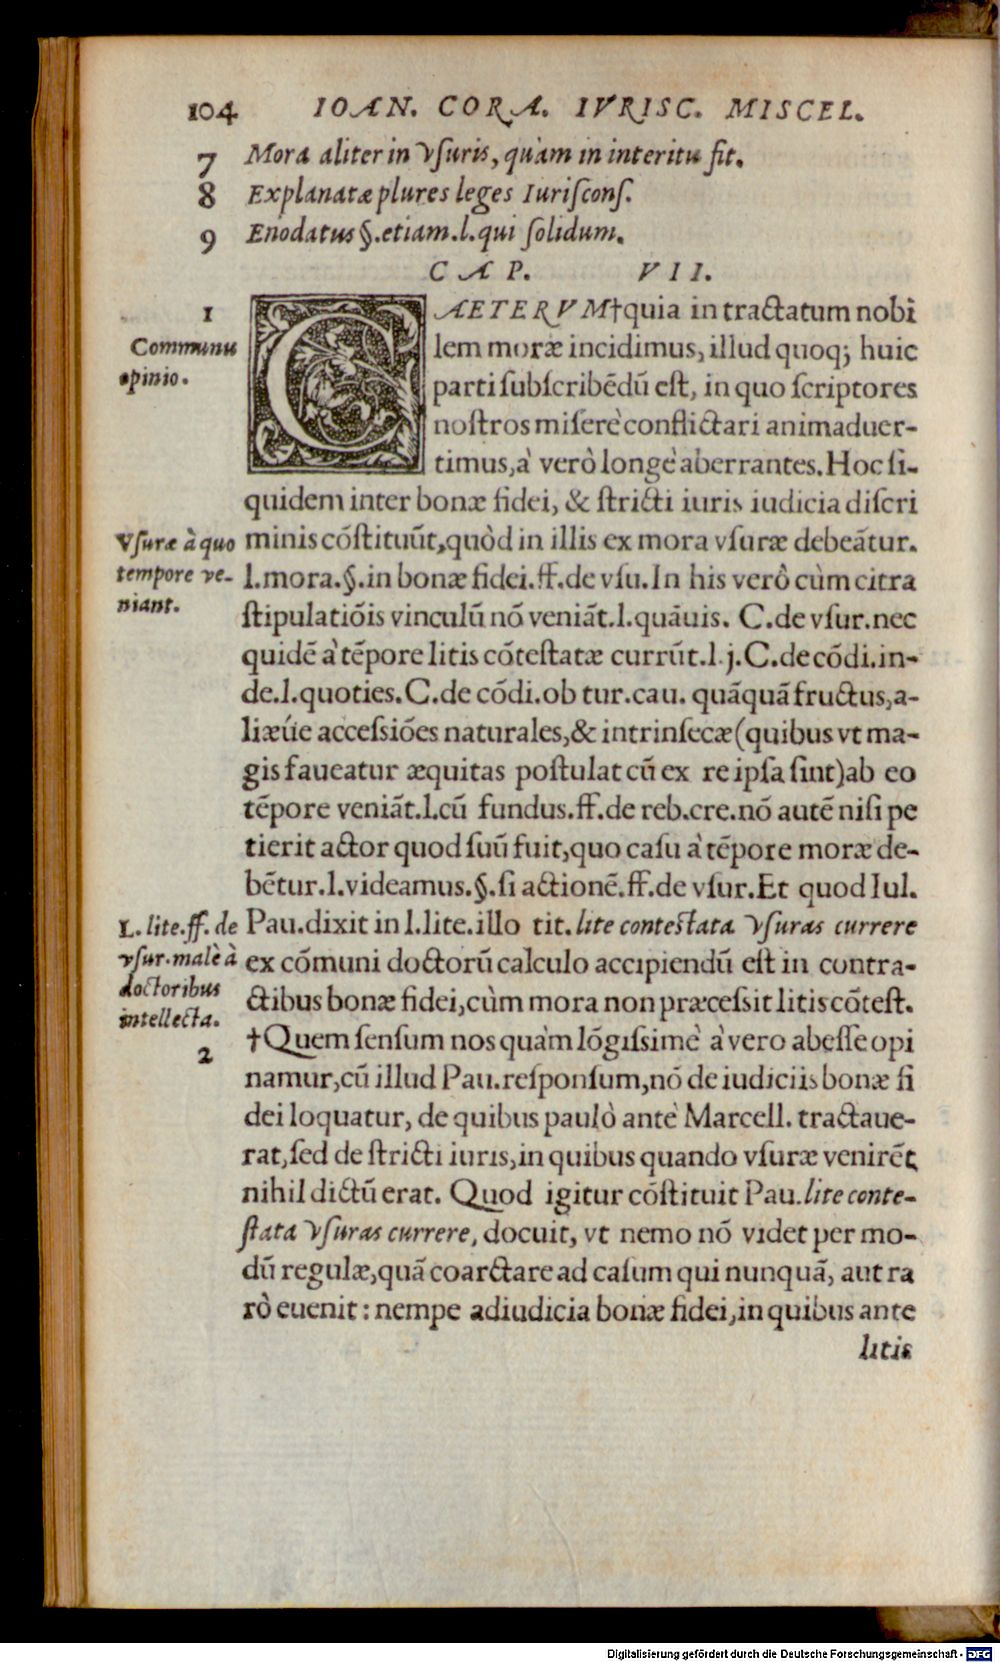 104 IOAN. CORA. IVRISC. MISCEL.
7 Mora aliter in vſuris, quàm in interitu fit.
8 Explanatæ plures leges Iuriſconſ.
9 Enodatus §.etiam.l.qui ſolidum.
CAP. VII.
1
Communis
opinio.
CAETERVM†quia in tractatum nobi
lem moræ incidimus, illud quoq; huic
parti ſubſcribẽdũ eſt, in quo ſcriptores
noſtros miſerè conflictari animaduer-
timus,à verò longè aberrantes.Hoc ſi-
quidem inter bonæ fidei, & ſtricti iuris iudicia diſcri
Vſuræ à quo
tempore ve-
niant.
minis cõſtituũt,quòd in illis ex mora vſuræ debeãtur.
l.mora.§.in bonæ fidei.ff.de vſu.In his verò cùm citra
ſtipulatiõis vinculũ nõ veniãt.l.quãuis. C.de vſur.nec
quidẽ à tẽpore litis cõteſtatæ currũt.l.j.C.de cõdi.in-
de.l.quoties.C.de cõdi.ob tur.cau. quãquã fructus,a-
liæúe acceſsiões naturales,& intrinſecæ(quibus vt ma-
gis faueatur æquitas poſtulat cũ ex re ipſa ſint)ab eo
tẽpore veniãt.l.cũ fundus.ff.de reb.cre.nõ autẽ niſi pe
tierit actor quod ſuũ fuit,quo caſu à tẽpore moræ de-
bẽtur.l.videamus.§.ſi actionẽ.ff.de vſur.Et quod Iul.
L. lite.ff. de
vſur.malè à
doctoribus
intellecta.
2
Pau.dixit in l.lite.illo tit. lite conteſtata vſuras currere
ex cõmuni doctorũ calculo accipiendũ eſt in contra-
ctibus bonæ fidei,cùm mora non præceſsit litis cõteſt.
†Quem ſenſum nos quàm lõgiſsimè à vero abeſſe opi
namur,cũ illud Pau.reſponſum,nõ de iudiciis bonæ fi
dei loquatur, de quibus paulò antè Marcell. tractaue-
rat,ſed de ſtricti iuris,in quibus quando vſuræ venirẽt
nihil dictũ erat. Quod igitur cõſtituit Pau.lite conte-
ſtata vſuras currere, docuit, vt nemo nõ videt per mo-
dũ regulæ,quã coarctare ad caſum qui nunquã, aut ra
rò euenit : nempe ad iudicia bonæ fidei,in quibus ante
litis
Digitalisierung gefördert durch die Deutsche Forschungsgemeinschaft - DFG